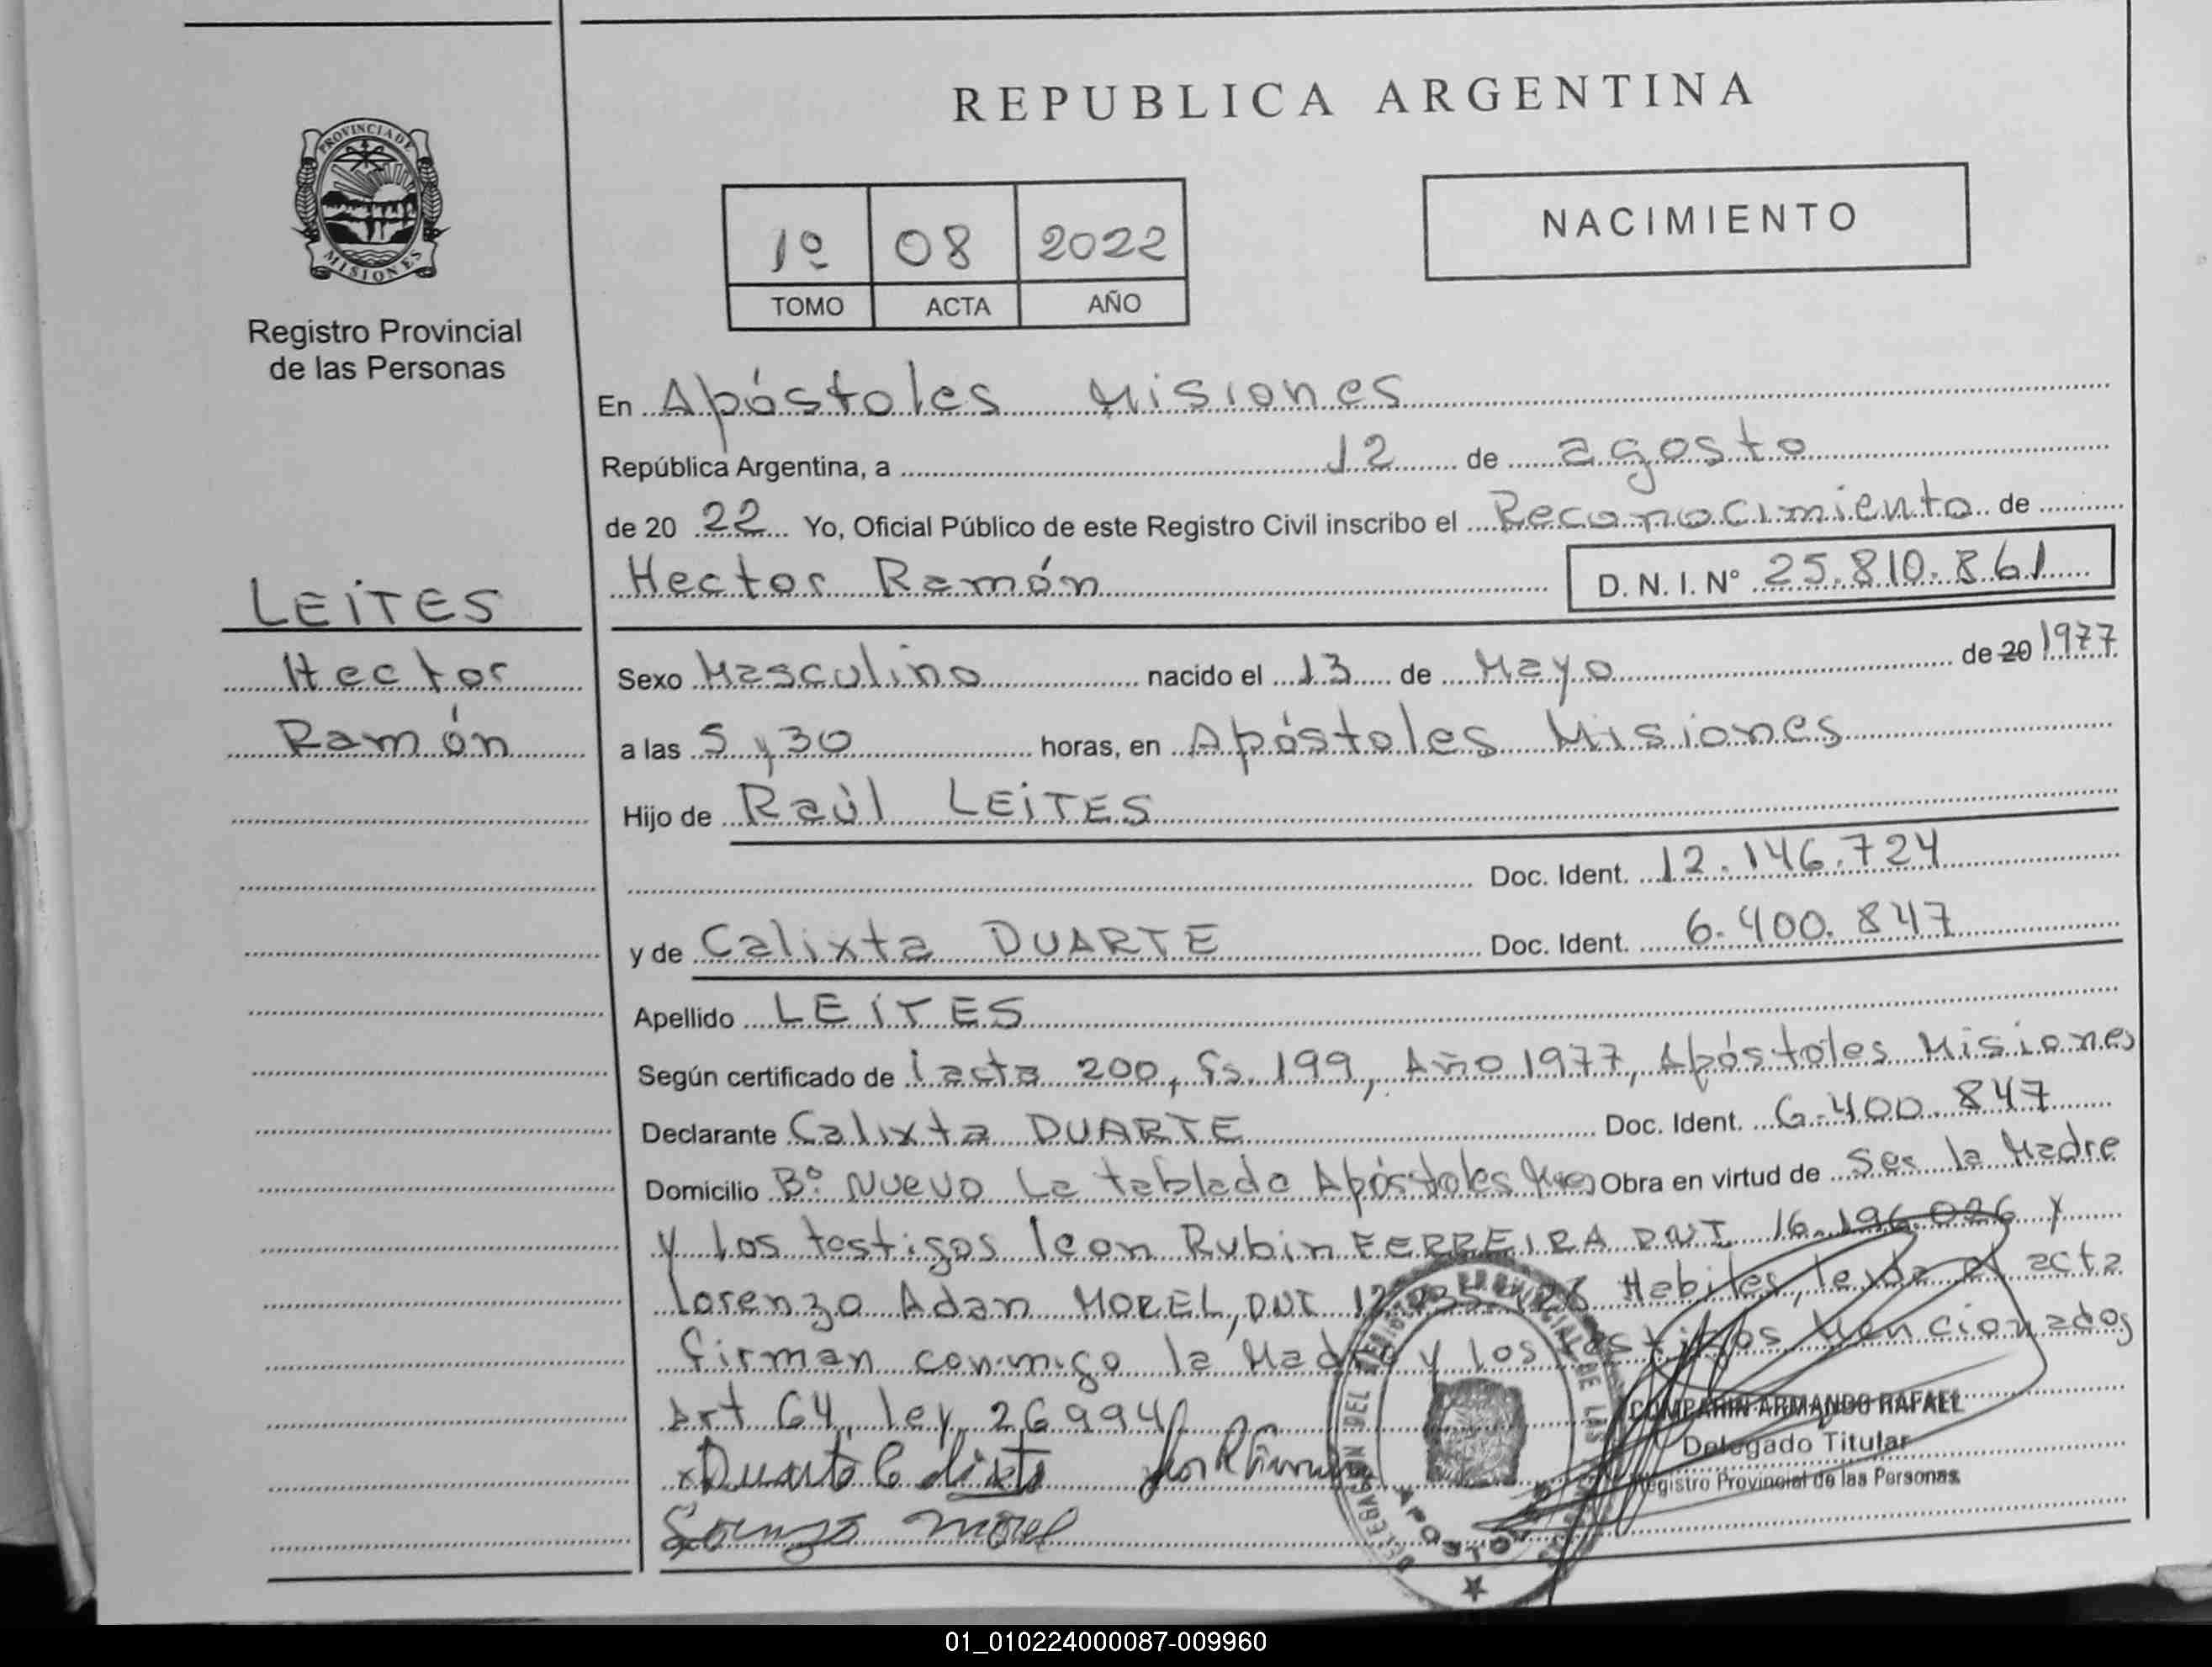 REPUBLICA ARGENTINA
PROVINCIA DE
MISIONES
Registro Provincial
de las Personas
1º 08 2022
TOMO ACTA AÑO
NACIMIENTO
En Apóstoles Misiones
República Argentina, a 12 de agosto
de 20 22 Yo, Oficial Público de este Registro Civil inscribo el Reconocimiento de
Hector Ramón D. N. I. Nº 25.810.861
LEITES
Hector
Ramón
Sexo Masculino nacido el 13 de Mayo de 20 1977
a las 5 y 30 horas, en Apóstoles Misiones
Hijo de Raúl LEITES
Doc. Ident. 12.146.724
y de Calixta DUARTE Doc. Ident. 6.400.847
Apellido LEITES
Según certificado de acta 200, Fs. 199, Año 1977, Apóstoles Misiones
Declarante Calixta DUARTE Doc. Ident. 6.400.847
Domicilio Bº Nuevo La tablada Apóstoles Obra en virtud de Ser la Madre
y los testigos leon Rubin FERREIRA DNI 16.196.026 y
lorenzo Adan MOREL, DNI Habiles, leida el acta
firman conmigo la Madre y los testigos Mencionados
Art 64, ley 26994
Duarte Calixta
Lorenzo Morel
COMPARIN ARMANDO RAFAEL
Delegado Titular
Registro Provincial de las Personas
DELEGACION DEL REGISTRO PROVINCIAL DE LAS
APOSTOLES
01_010224000087-009960